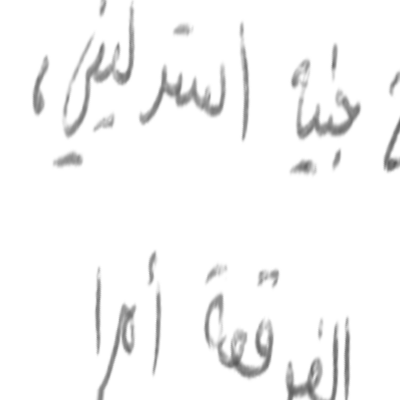 جنيه استرليني،
الفرقعة أمرا